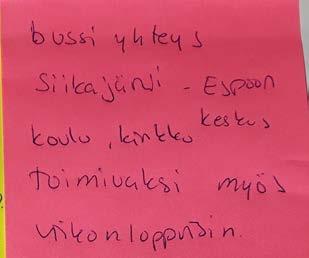 bussi yhteys
Siikajärvi - Espoon
keskus
koulu, kirkko
toimivaksi myös
viikonloppuisin.